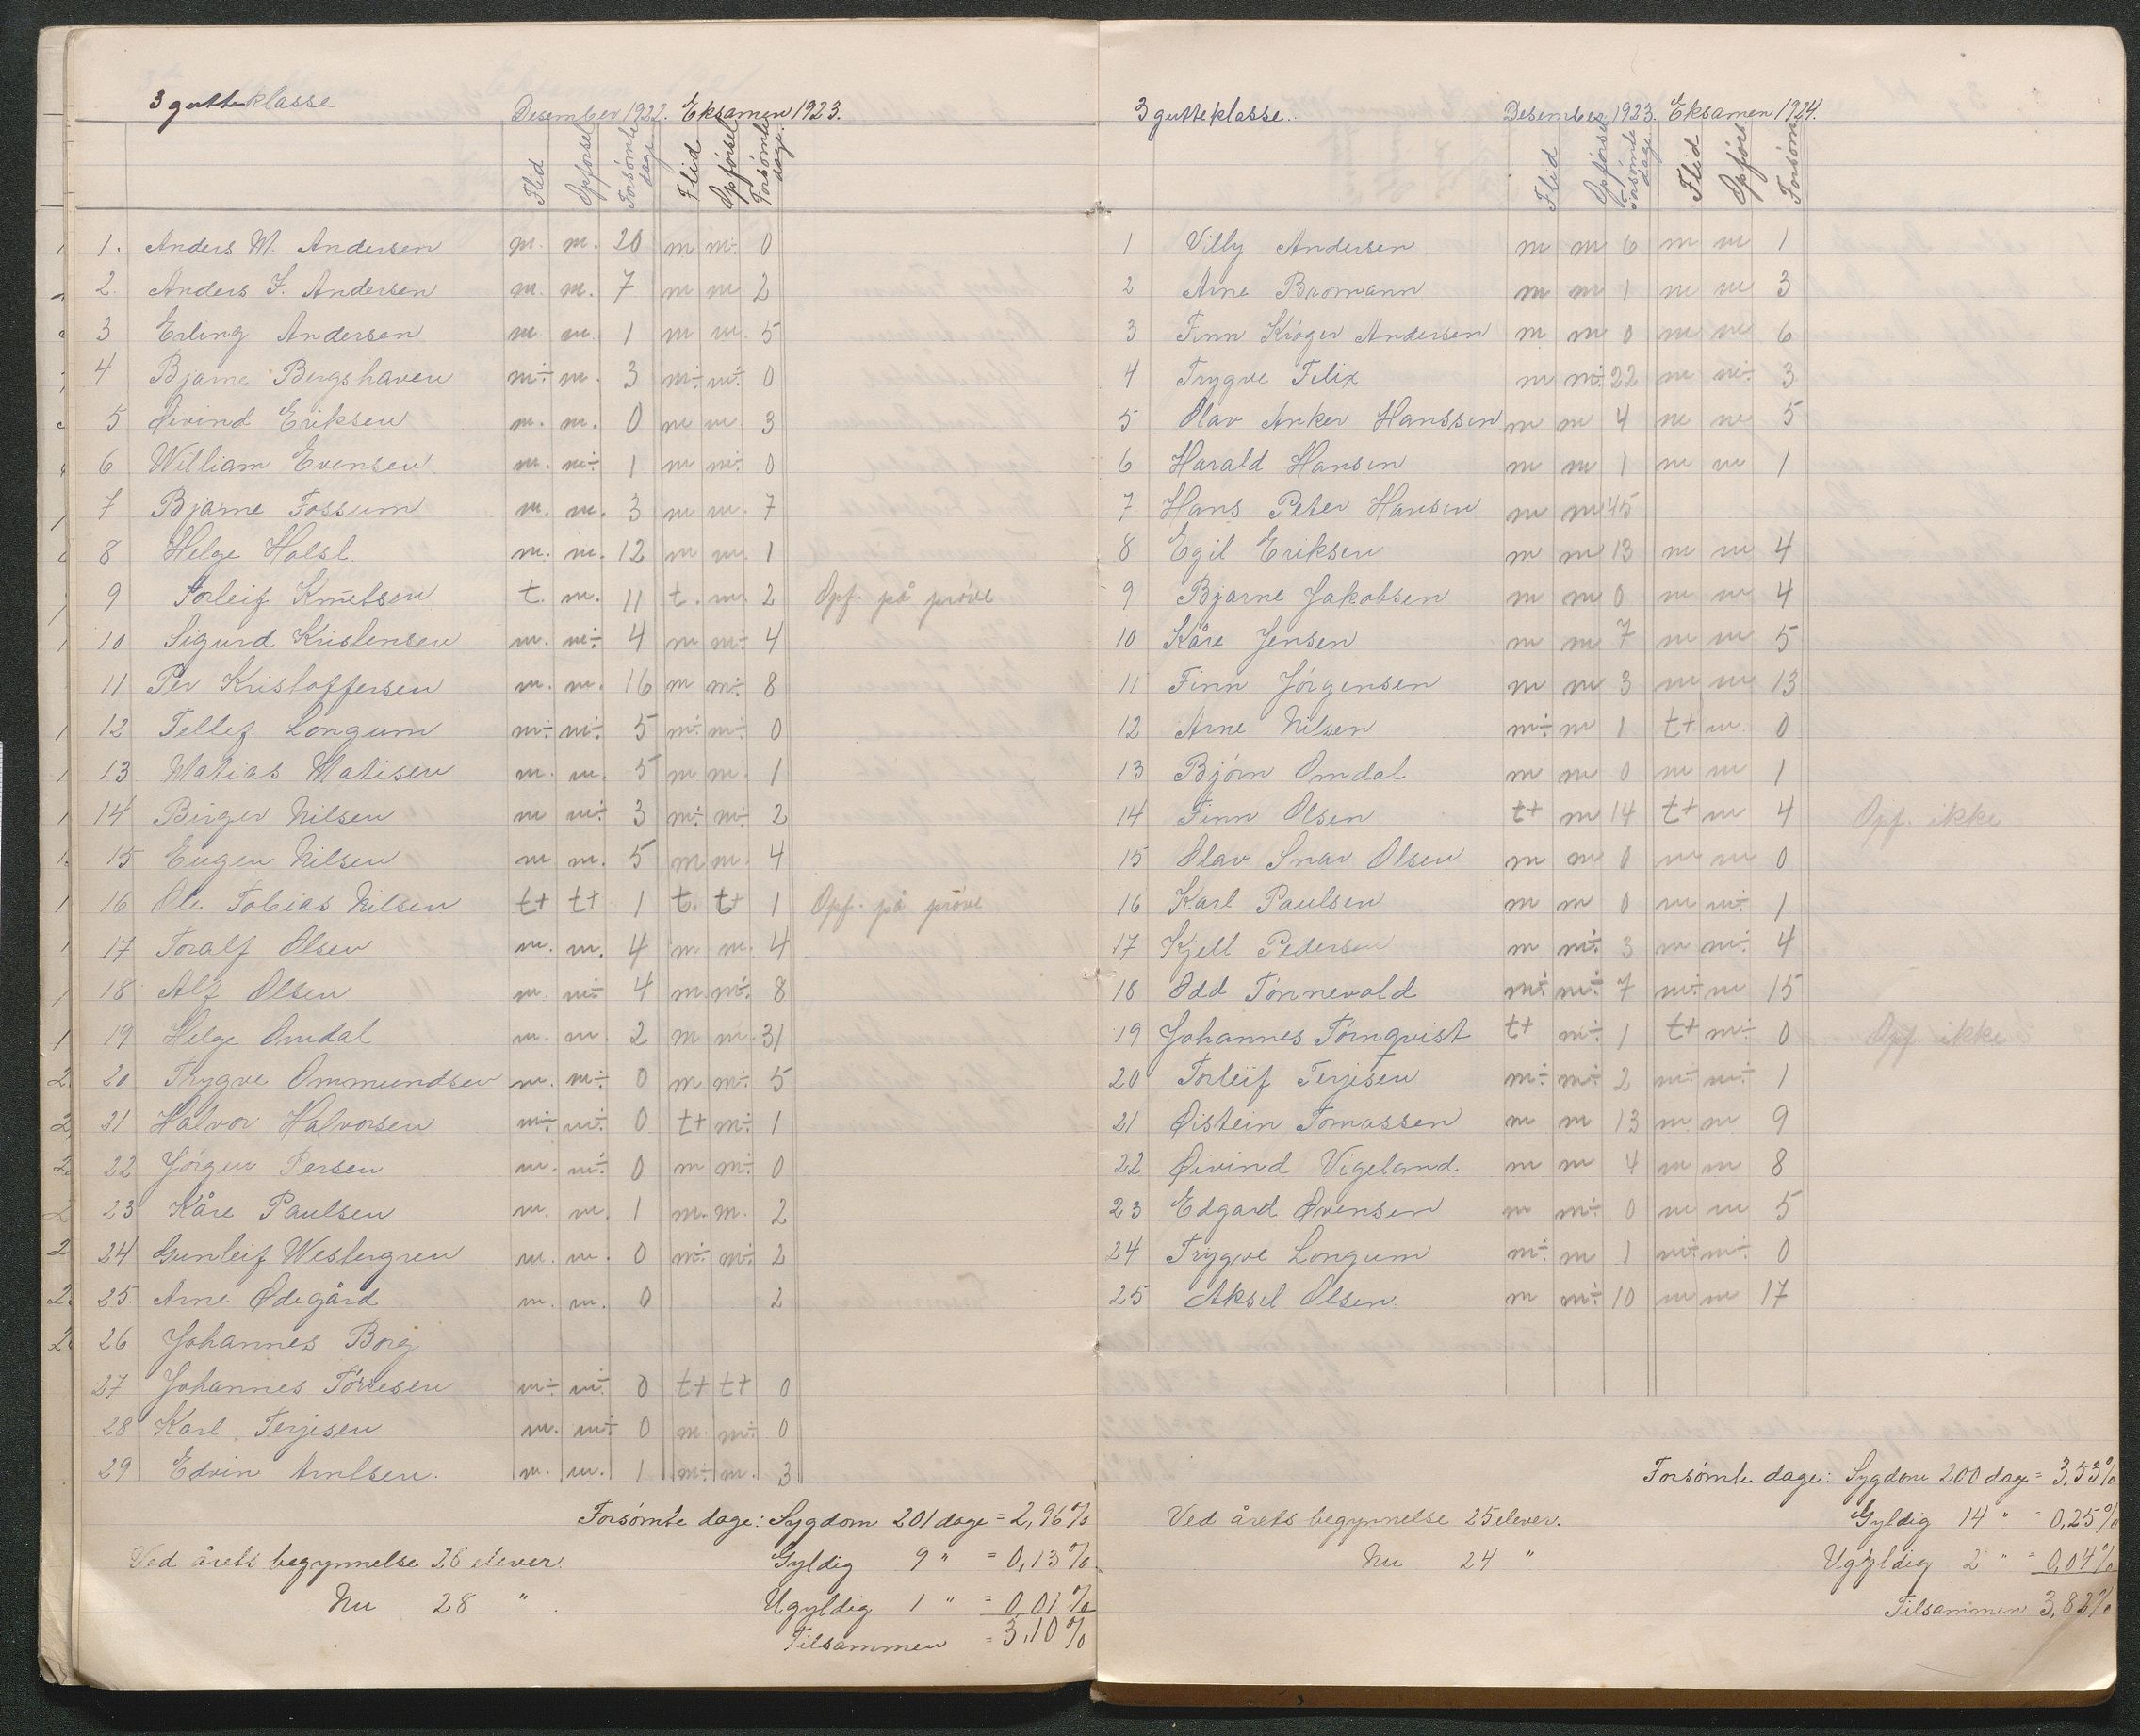 3 gutteklasse
Desember 1922. Eksamen 1923.
Flid Opførsel Forsømte dage Flid Opførsel Forsømte dage.
1. Anders M. Andersen m. m. 20 m m÷ 0
2. Anders F. Andersen m. m. 7 m m 2
3 Erling Andersen m. m. 1 m m. 5
4 Bjarne Bergshaven m÷ m. 3 m÷ m÷ 0
5 Øivind Eriksen m. m. 0 m m. 3
6 William Evensen m. m÷ 1 m m÷ 0
7 Bjarne Fossum m. m. 3 m m. 7
8 Helge Holst m. m. 12 m m. 1
9 Torleif Knutsen t. m. 11 t. m. 2 Opf. på prøve
10 Sigurd Kristensen m. m÷ 4 m m÷ 4
11 Per Kristoffersen m. m. 16 m m÷ 8
12 Tellef Longum m÷ m÷ 5 m÷ m÷ 0
13 Matias Matisen m. m. 5 m m. 1
14 Birger Nilsen m m÷ 3 m÷ m÷ 2
15 Eugen Nilsen m m. 5 m m. 4
16 Ole Tobias Nilsen t+ t+ 1 t. t+ 1 Opf. på prøve
17 Toralf Olsen m. m. 4 m m. 4
18 Alf Olsen m. m÷ 4 m. m÷ 8
19 Helge Omdal m. m. 2 m m. 31
20 Thygve Ommundsen m. m÷ 0 m m÷ 5
21 Halvor Halvorsen m÷ m÷ 0 t+ m÷ 1
22 Jørgen Persen m. m÷ 0 m m÷ 0
23 Kåre Paulsen m. m. 1 m. m. 2
24 Gunleif Westergren m. m. 0 m÷ m÷ 2
25. Arne Ødegård m. m. 0 2
26 Johannes Borg
27 Johannes Tørresen m÷ m÷ 0 t+ t+ 0
28 Karl Terjesen m. m÷ 0 m. m÷ 0
29 Edvin Arntsen. m. m. 1 m÷ m. 3
Forsømte dage: Sygdom 201 dage = 2,96%
Ved årets begynnelse 26 elever. Gyldig 9 " = 0,13%
Nu 28 " . Ugyldig 1 " = 0,01%
Tilsammen = 3,10%
3 gutteklasse.
Desember 1923. Eksamen 1924.
Flid Opførsel Forsømte dage Flid Opførs. Forsømt
1 Villy Andersen m m 6 m m 1
2 Arne Bromann m m 1 m m 3
3 Finn Krøger Andersen m m 0 m m 6
4 Trygve Felix m m÷ 22 m m÷ 3
5 Olav Anker Hanssen m m 4 m m 5
6 Harald Hansen m m 1 m m 1
7 Hans Peter Hansen m m 45
8 Egil Eriksen m m 13 m m 4
9 Bjarne Jakobsen m m 0 m m 4
10 Kåre Jensen m m 7 m m 5
11 Finn Jørgensen m m 3 m m 13
12 Arne Nilsen m÷ m 1 t+ m 0
13 Bjørn Omdal m m 0 m m 1
14 Finn Olsen t+ m 14 t+ m 4 Opf. ikke
15 Olav Snar Olsen m m 0 m m 0
16 Karl Paulsen m m 0 m m÷ 1
17 Kjell Pedersen m m÷ 3 m m÷ 4
18 Odd Tønnevold m÷ m÷ 7 m÷ m 15
19 Johannes Tørnqvist t+ m÷ 1 t+ m÷ 0 Opf. ikke
20 Torleif Terjesen m÷ m÷ 2 m÷ m÷ 1
21 Øistein Tomassen m m 13 m m 9
22 Øivind Vigeland m m 4 m m 8
23 Edgard Øvensen m m÷ 0 m m 5
24 Trygve Longum m÷ m 1 m÷ m÷ 0
25 Aksel Olsen. m m÷ 10 m m 17
Forsømte dage: Sygdom 200 dage = 3,53%
Ved årets begynnelse 25 elever. Gyldig 14 " = 0,25%
Nu 24 " Ugyldig 2 " = 0,04%
Tilsammen 3,82%